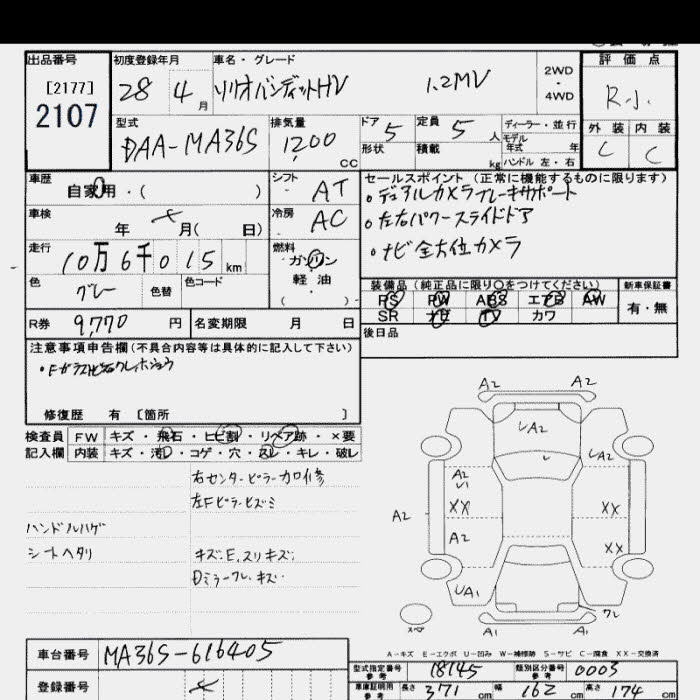 出品番号
[2177]
2107
初度登録年月
28 4月
車名・グレード
ソリオバンディットHV 1.2MV
2WD・4WD
評価点
R.J.
外装 内装
C C
型式
DAA-MA36S
排気量
1200 cc
ドア 5
形状
定員 5人
積載 kg
ディーラー・並行
モデル年式 年
ハンドル 左・右
車歴
自家用・( )
シフト
・AT
セールスポイント (正常に機能するものに限ります)
・デュアルカメラブレーキサポート
・左右パワースライドドア
・ナビ全方位カメラ
車検
年 メ 月( 日)
冷房
・AC
走行
10万6千015km
燃料
ガソリン
軽油
・( )
色
グレー
色替
色コード
装備品 (純正品に限り○をつけてください)
PS PW ABS エアB AW
SR ナビ TV カワ
新車保証書
有・無
R券 9,770 円
名変期限 月 日
後日品
注意事項申告欄(不具合内容等は具体的に記入して下さい)
修復歴 有 〔箇所 〕
検査員記入欄
FW キズ・飛石・ヒビ割・リペア跡・×要
内装 キズ・汚れ・コゲ・穴・スレ・キレ・破レ
右センターピラー加修
左Fピラーヒズミ
ハンドルハゲ
シートヘタリ
キズ・E.スリキズ・
Dミラーワレ・キズ・
A2 A2
UA2
UA2
A2
U1
XX XX
A2
A2
XX
UA1
ワレ
A1 A1
スペア
A-キズ E-エクボ U-凹み W-補修跡 S-サビ C-腐食 XX-交換済
車台番号
MA36S-616405
登録番号
メ
型式指定番号 参考 18145
類別区分番号 参考 0003
車庫証明用 参考 長さ 371 cm 幅 162 cm 高さ 174 cm